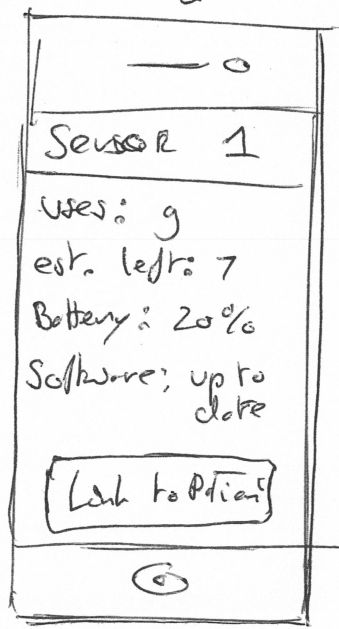 Sensor 1
uses: 9
est. left: 7
Battery: 20%
Software: up to
date
Link to Patient